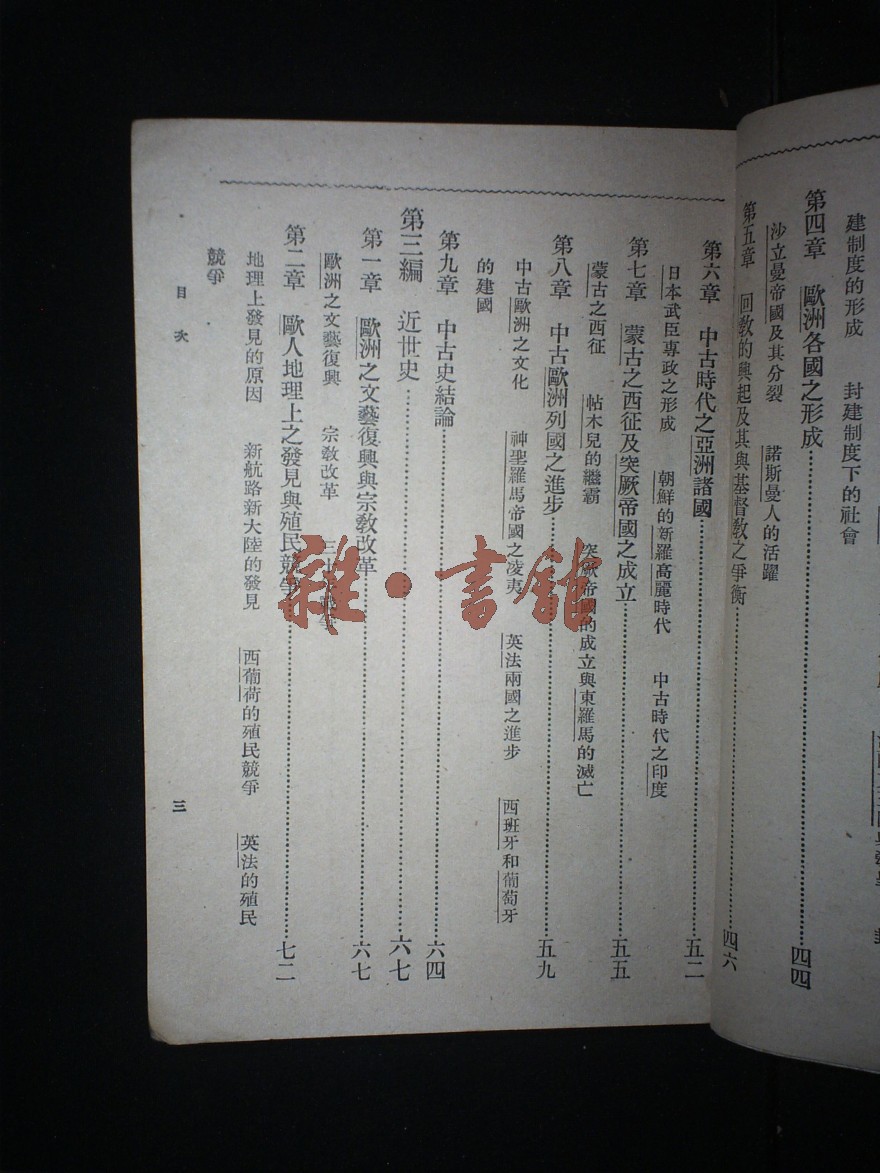 建制度的形成 封建制度下的社會
第四章 歐洲各國之形成………四四
沙立曼帝國及其分裂 諾斯曼人的活躍
第五章 回教的興起及其與基督教之爭衡………四六
第六章 中古時代之亞洲諸國………五二
日本武臣專政之形成 朝鮮的新羅高麗時代 中古時代之印度
第七章 蒙古之西征及突厥帝國之成立………五五
蒙古之西征 帖木兒的繼霸 突厥帝國的成立與東羅馬的滅亡
第八章 中古歐洲列國之進步………五九
中古歐洲之文化 神聖羅馬帝國之凌夷 英法兩國之進步 西班牙和葡萄牙
的建國
第九章 中古史結論………六四
第三編 近世史………六七
第一章 歐洲之文藝復興與宗教改革………六七
歐洲之文藝復興 宗教改革 三十年戰爭
第二章 歐人地理上之發見與殖民競爭………七二
地理上發見的原因 新航路新大陸的發見 西葡荷的殖民競爭 英法的殖民
競爭
目次
三
雜·書館